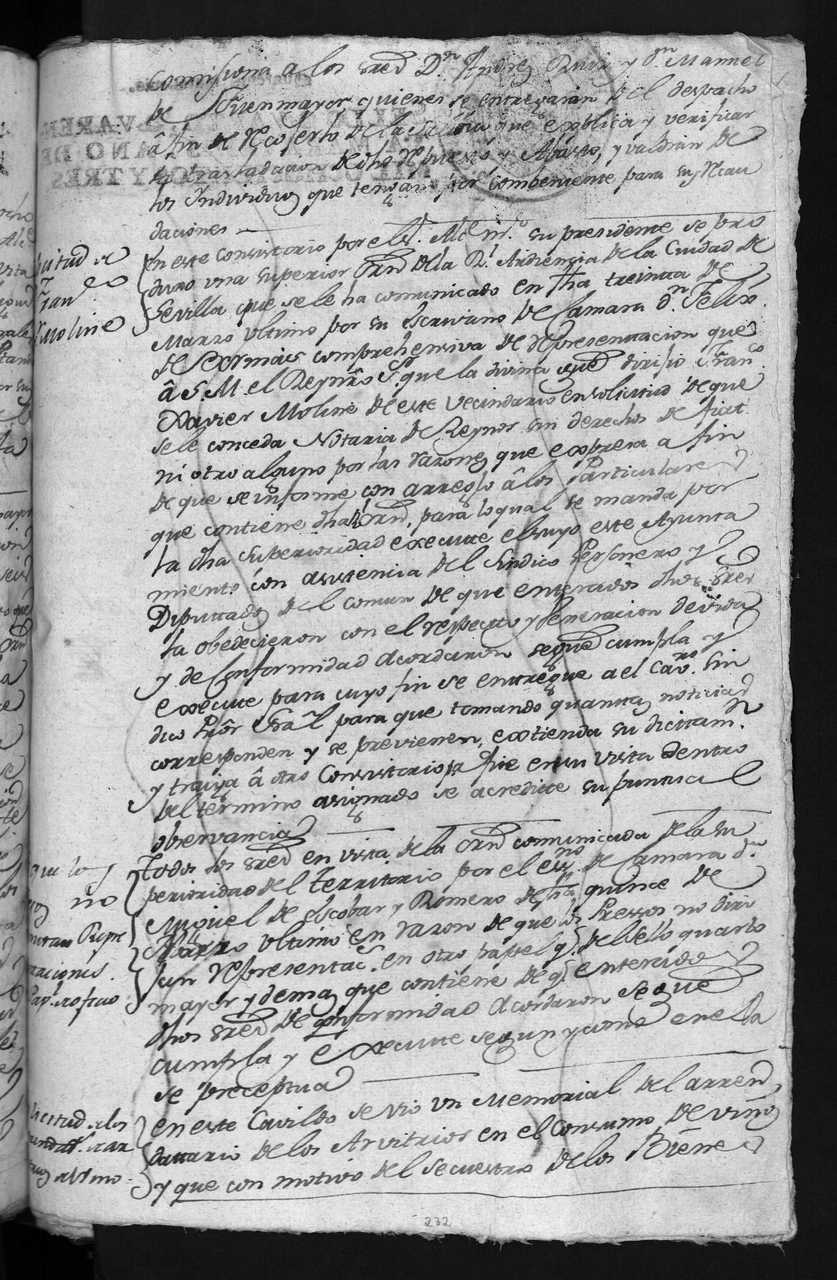 comisiona a los Sres Dn Andres Ruiz y dn Manuel
de Fuenmayor quienes se entregarán del despacho
â fin de
la traslacion de dho repuesto y Abasto, y valdrán de
los Individuos que tengan por combeniente para su
daciones
En este Consistorio por el Sr. su presidente se pro
dujo una superior Orn de la Rl Audiencia de la Ciudad de
Sevilla que se le ha comunicado en fha treinta de
Marzo ultimo por su escrivano de Camara dn Felix
de Cormáis comprehensiva de representacion que
â S. M. el Rey nro Sr que la divina gue dirijio Franco
Xavier Moline de este vecindario en solicitud de que
se le conceda Notaria de Reynos sin derechos de fiat
ni otro alguno por las razones que expresa a fin
de que se informe con arreglo â los Particulares
que contiene dha Orn, para lo qual se manda por
la dha Superioridad execute el suyo este Ayunta
miento con asistencia del Sindico Personero y
Diputtados del comun de que enterados dhos Sres
la obedecieron con el respecto y veneracion devida
y de Conformidad Acordaron se gue cumpla y
execute para cuyo fin se entregue a el Cavo. Sin
dico Pror Gral para que tomando quantas noticias
corresponden y se previenen, extienda su dictamn
y trayga â otro Consistorio pa que en su vista dentro
del termino asignado se acredite su puntual
observancia
Todos los Sres en vista de la Orn comunicada de la Su
perioridad del territorio por el esno de Camara dn
Miguel de Escobar y Romero de fha quince de
Marzo ultimo en razon de que los Pressos no diri
jan representacs. en otro papel q. del sello quarto
mayor y demas que contiene de q. enterados
dhos Sres de conformidad Acordaron se gue
cumpla y execute segun y como en ella
se preceptua
En este Cavildo se vio un Memorial del arren
datario de los Arvitrios en el consumo de vino
y que con motivo del secuestro de los Bienes
Fran.co
Moline
no
Repre
taciones
Pap. de oficio
232